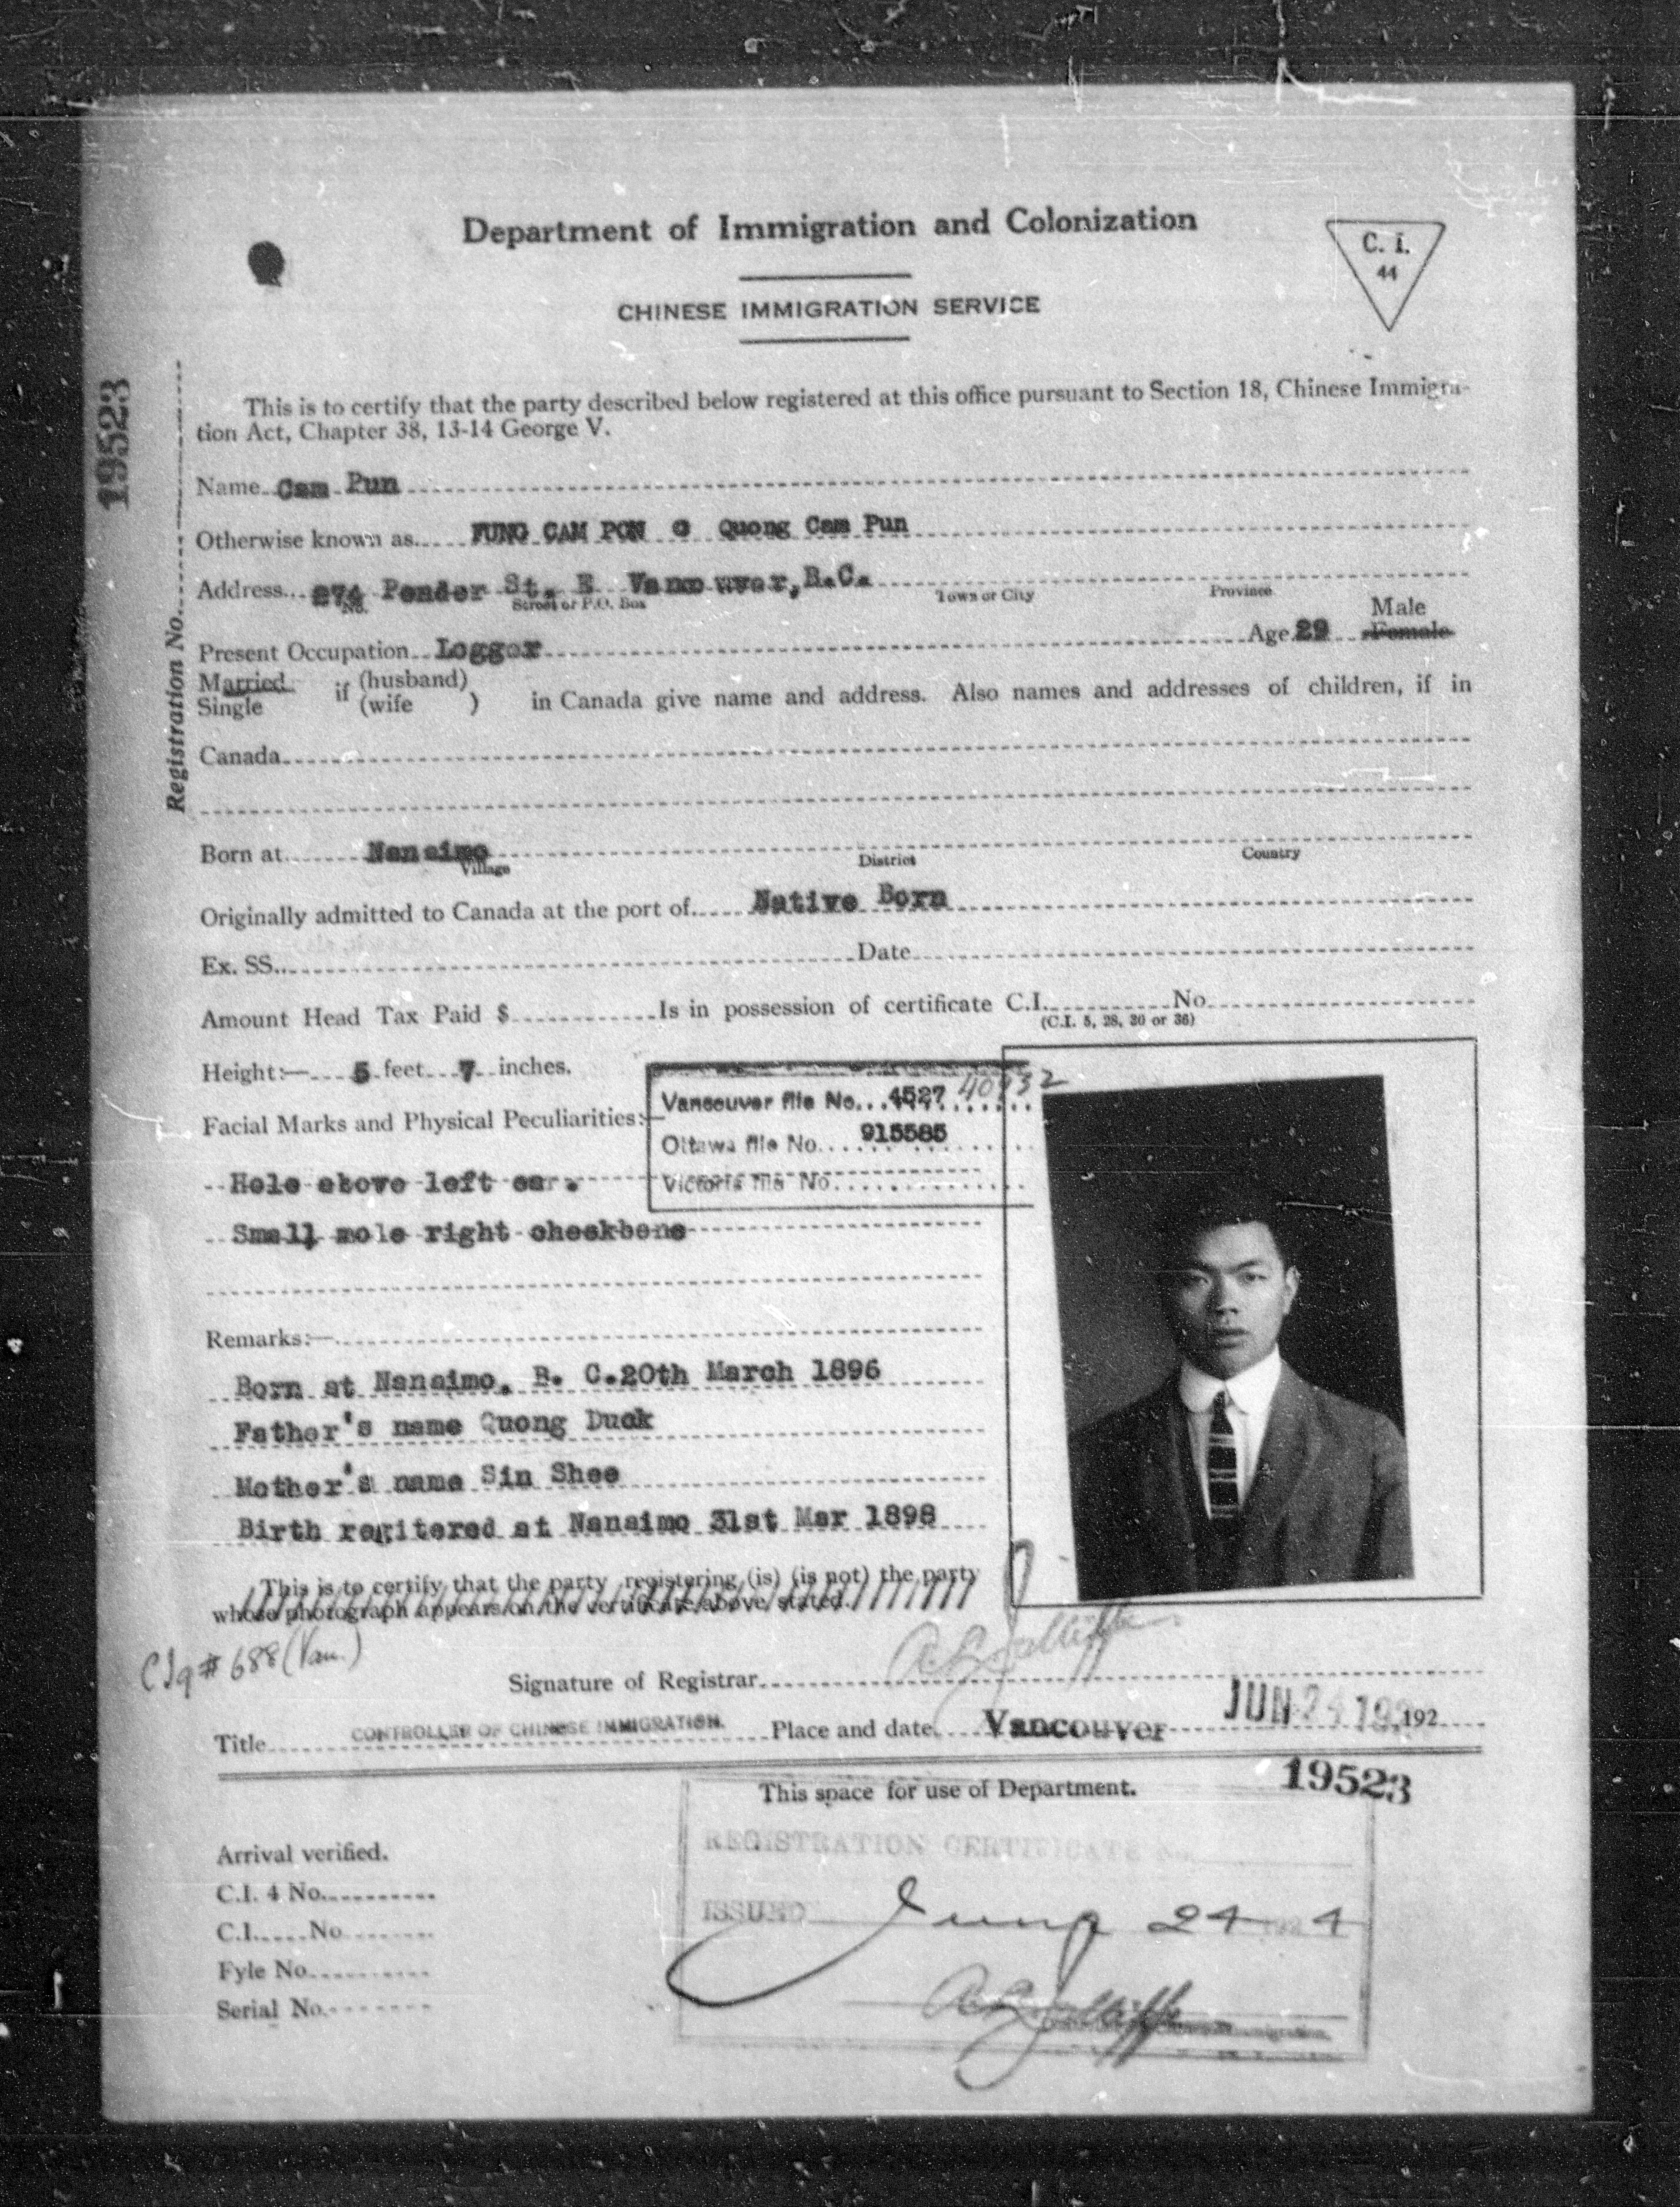 Department of Immigration and Colonization
C. I.
44
CHINESE IMMIGRATION SERVICE
19523
Registration No.
This is to certify that the party described below registered at this office pursuant to Section 18, Chinese Immigra-
tion Act, Chapter 38, 13-14 George V.
Name Cam Pun
Otherwise known as FUNG CAM PON Quong Cam Pun
Address 274 Pender St. E Vancouver, B.C.
No. Street or P.O. Box Town or City Province
Present Occupation Logger Age 29 Male Female
Married Single if (husband) (wife ) in Canada give name and address. Also names and addresses of children, if in
Canada
Born at Nanaimo
Village District Country
Originally admitted to Canada at the port of Native Born
Ex. SS. Date
Amount Head Tax Paid $ Is in possession of certificate C.I. No.
(C.I. 5, 28, 30 or 36)
Height:— 5 feet 7 inches.
Facial Marks and Physical Peculiarities:—
Vancouver file No. 4527
Ottawa file No. 915585
Victoria file No.
Hole above left ear.
Small mole right cheekbone
Remarks:—
Born at Nanaimo, B. C. 20th March 1896
Father's name Quong Duck
Mother's name Sin Shee
Birth regitered at Nanaimo 31st Mar 1898
This is to certify that the party registering (is) (is not) the party
whose photograph appears on the certificate above stated.
CI9 # 688 (Van.)
Signature of Registrar
Title CONTROLLER OF CHINESE IMMIGRATION. Place and date Vancouver JUN 24 192
19523
This space for use of Department.
REGISTRATION CERTIFICATE
ISSUED June 24 1924
Arrival verified.
C.I. 4 No.
C.I. No
Fyle No.
Serial No.